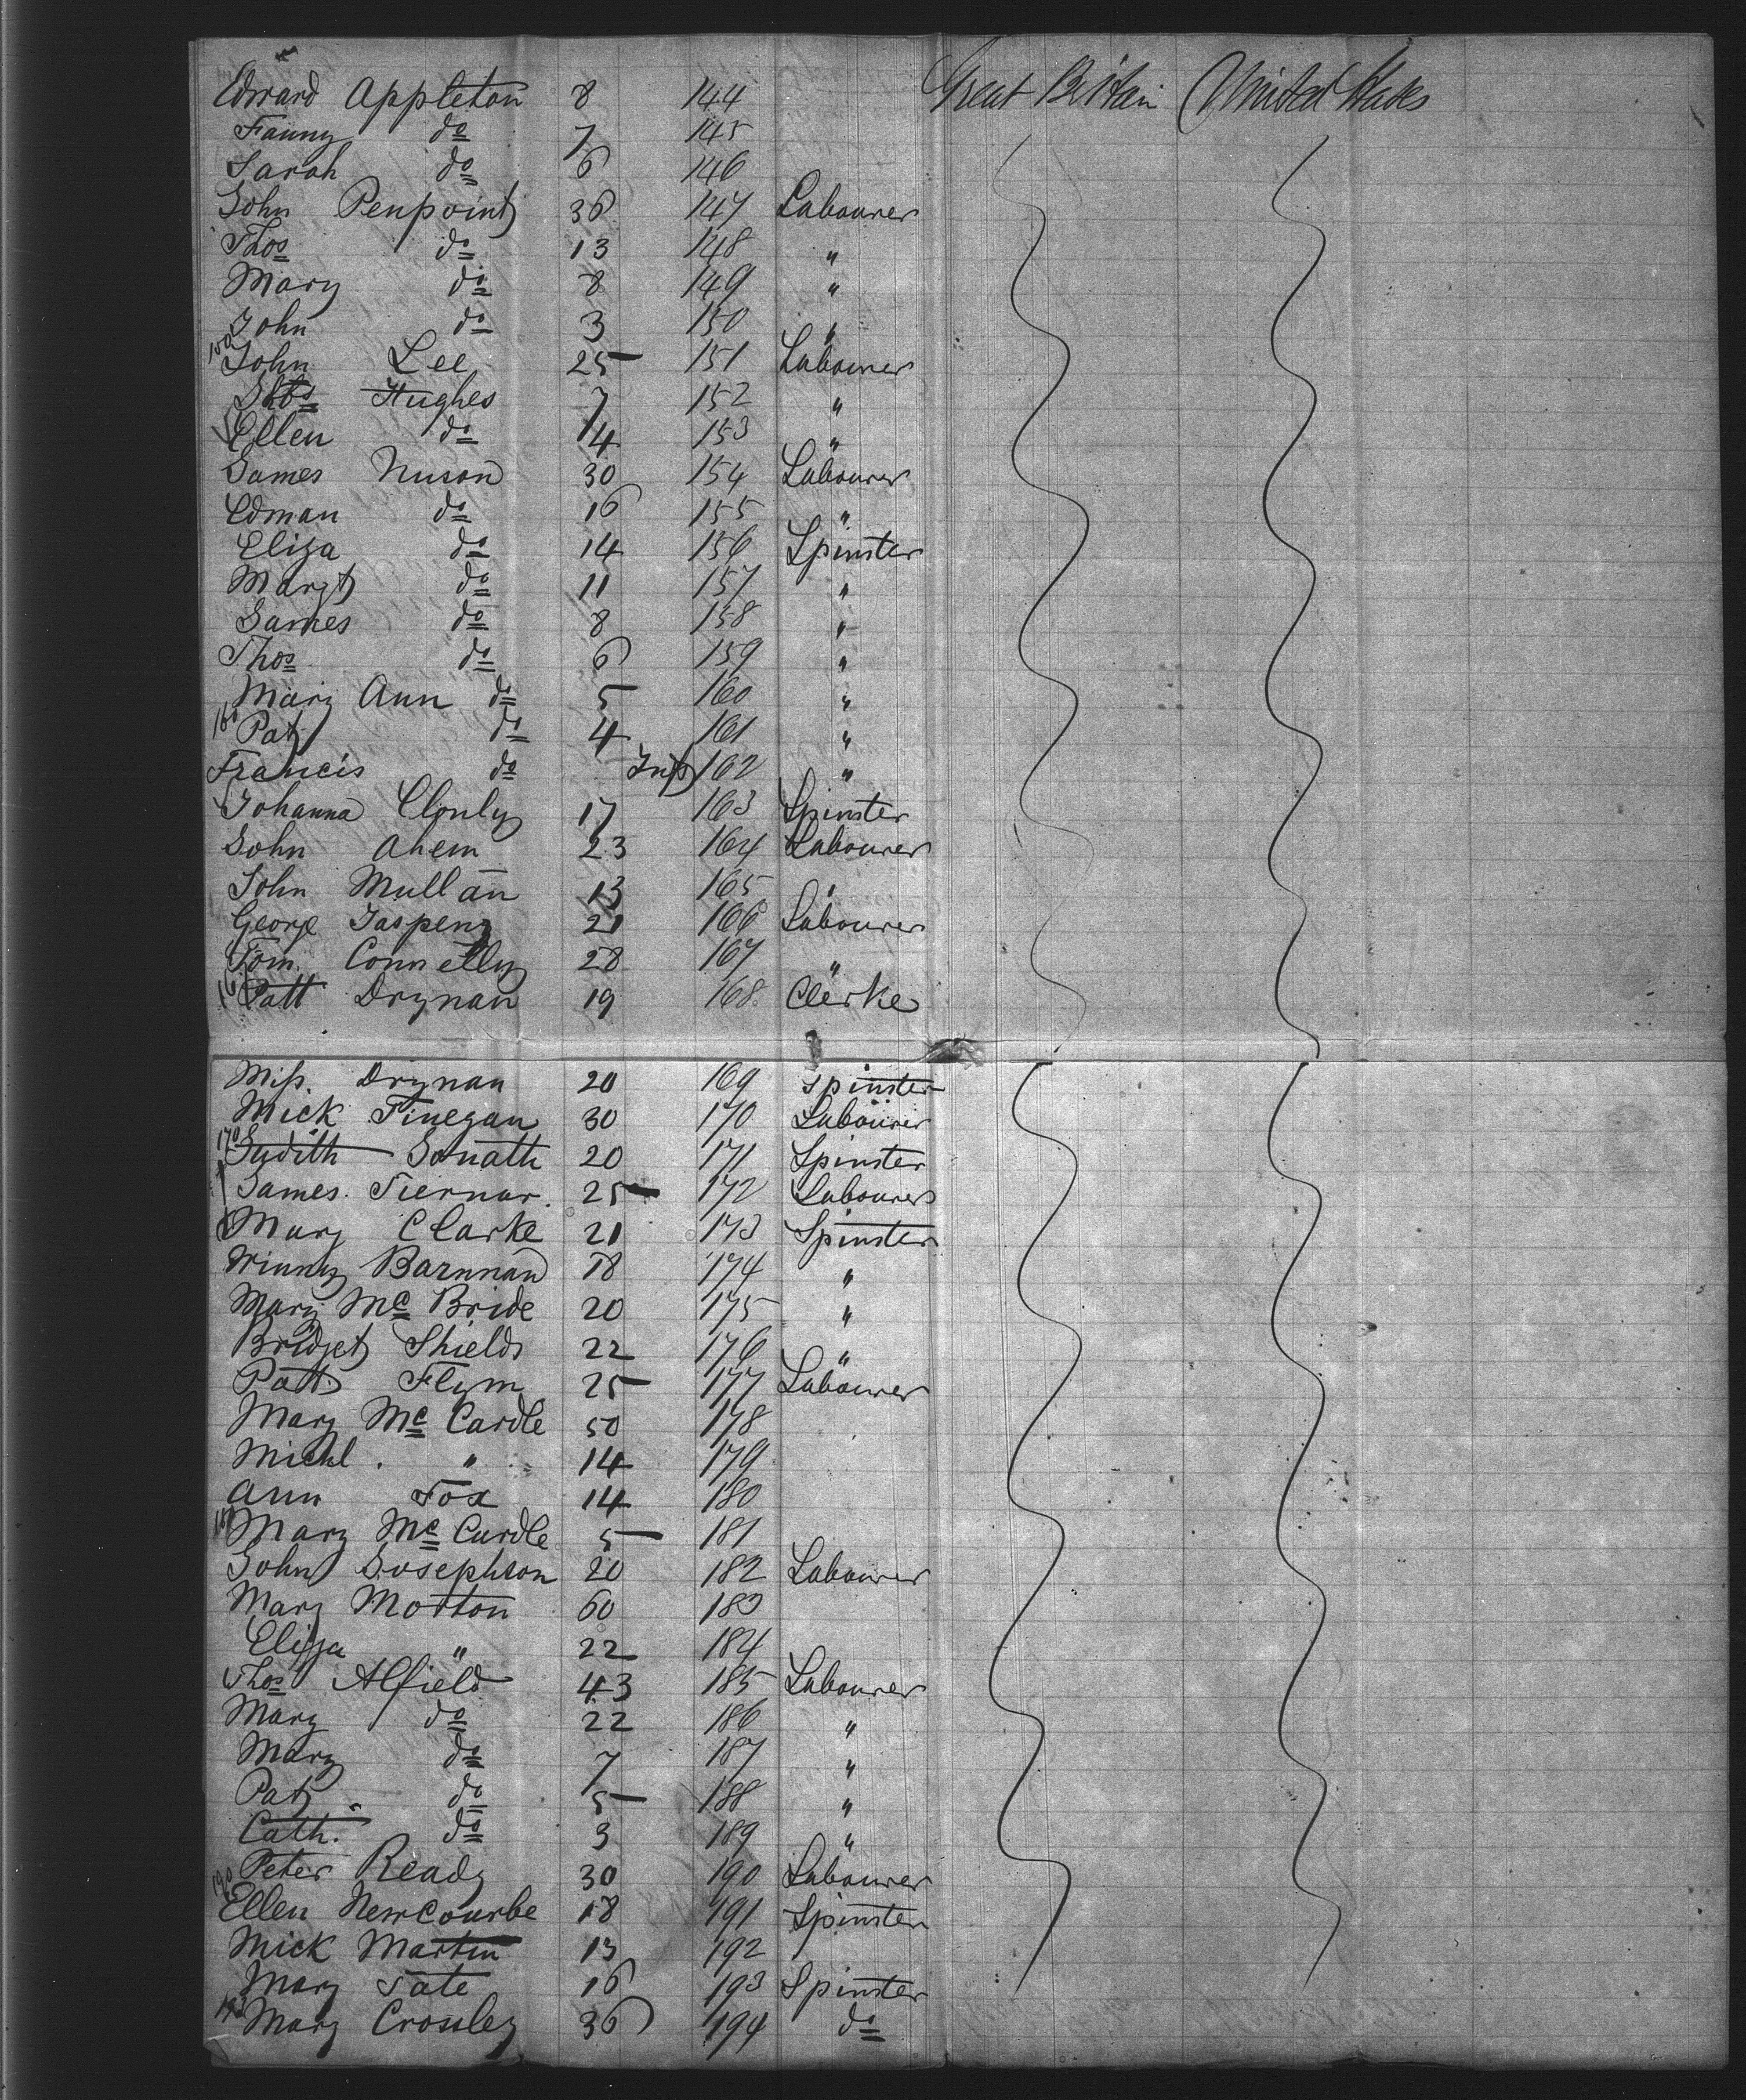 Edward Appleton 8 144 Great Britain United States
Fanny do 7 145
Sarah do 6 146
John Penpoint 36 147 Labourer
Thos do 13 148 "
Mary do 8 149 "
John do 3 150 "
150 John Lee 25 151 Labourer
Hughes 7 152 "
Ellen do 4 153 "
James Nuson 30 154 Labourer
Edman do 16 155 "
Eliza do 14 156 Spinster
Margt do 11 157 "
James do 8 158 "
Thos do 6 159 "
Mary Ann do 5 160 "
160 Pat do 4 161 "
Francis do Inft 162 "
Johanna Clonly 17 163 Spinster
John Ahern 23 164 Labourer
John Mullan 13 165 "
George Jaspeny 21 166 Labourer
Tom Connelly 28 167 "
Patt Drynan 19 168 Clerke
Miss. Drynan 20 169 Spinster
Mick Finegan 30 170 Labourer
170 Judith 20 171 Spinster
James. Tiernar 25 172 Labourer
Mary Clarke 21 173 Spinster
Winny Barnnan 18 174 "
Mary Mc Bride 20 175 "
Bridget Shields 22 176 "
Patt Flynn 25 177 Labourer
Mary Mc Cardle 50 178
Michl. " 14 179
Ann Fox 14 180
180 Mary Mc Curdle 5 181
John Josephson 20 182 Labourer
Mary Morton 60 183
Eliza " 22 184
Thos Alfield 43 185 Labourer
Mary do 22 186 "
Mary do 7 187 "
Pat do 5 188 "
Cath. do 3 189 "
190 Peter Ready 30 190 Labourer
Ellen Newcourbe 18 191 Spinster
Mick Martin 13 192
Mary Tate 16 193 Spinster
193 Mary Crossley 36 194 do